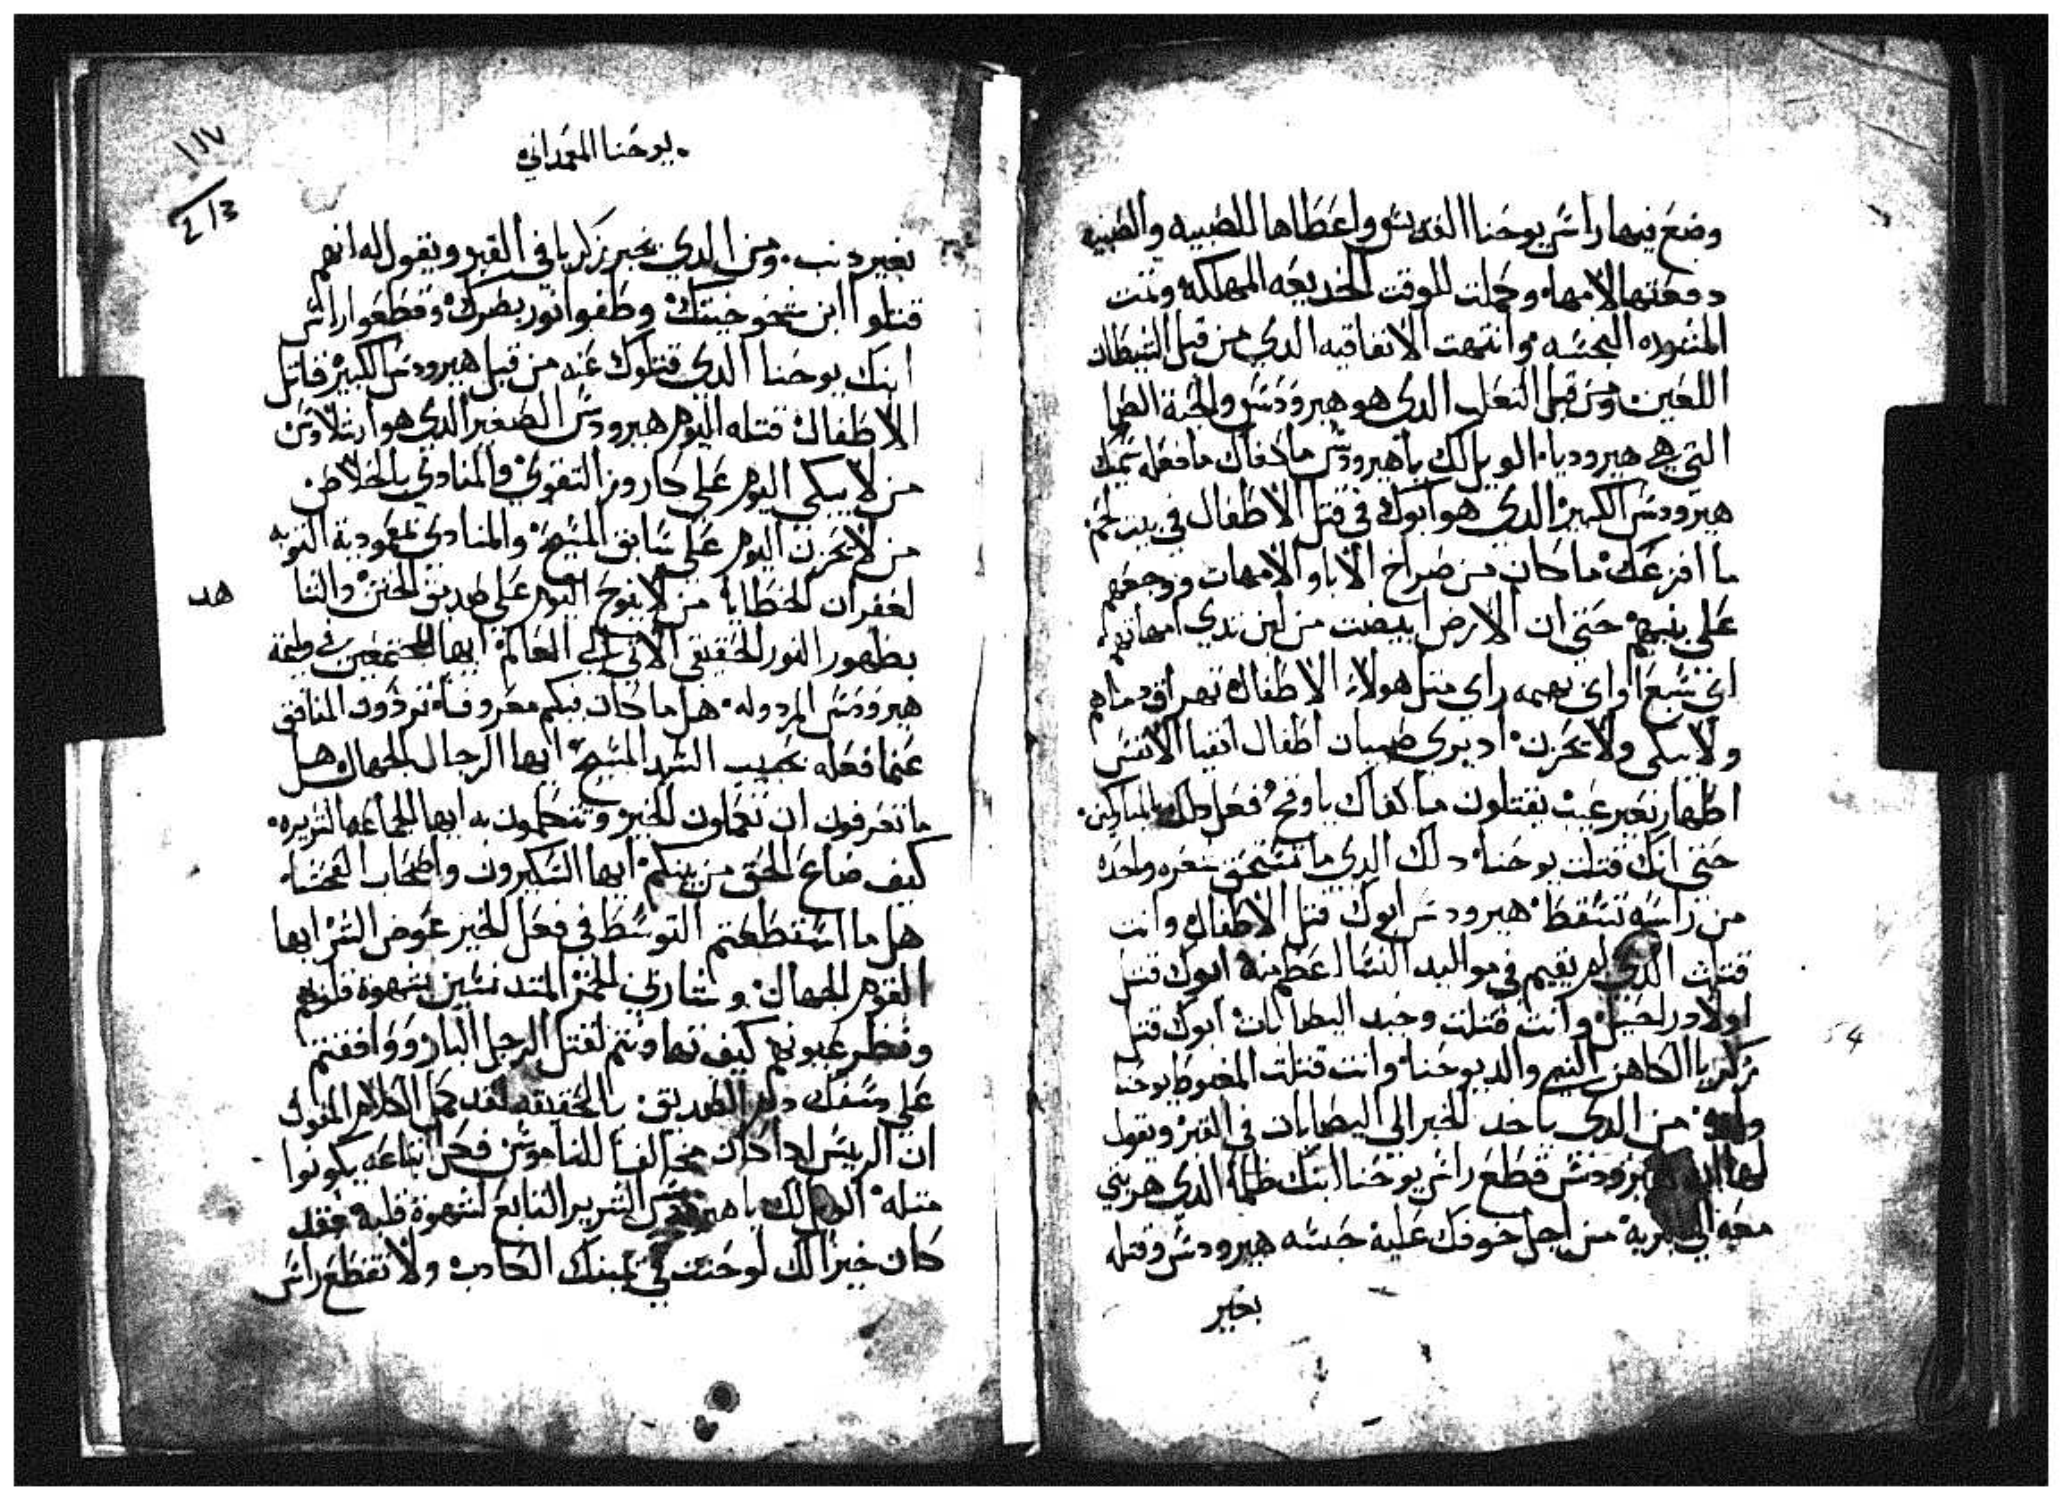 وضع فيها راس يوحنا القديس واعطاها للصبيه والصبيه
دفعتها لامها وكملت للوقت الخديعه المهلكه وتمت
المشوره النجسه وانتهت الاتفاقيه الدي من قبل الشيطان
اللعين ومن قبل التعلب الدي هو هيرودس والحية
التي هي هيروديا الويل لك يا هيرودس ما كفاك ما فعله
هيرودس الكبير الدي هو ابوك في قتل الاطفال في بيت لحم
ما افزعك ما كان من صراخ الابا والامهات ووجعهم
على بنيهم حتى ان الارض ابيضت من لبن تدي امهاتهم
اي سبع او اي بهيمه راي متل هولاء الاطفال تهراق دماهم
ولا يبكي ولا يحزن اد يري صبيان اطفال انقيا الانفس
اطهار بغير عيب يقتلون ما كفاك يا وقح فعل
حتى انك قتلت يوحنا دلك الدي ما تستحق شعره واحده
من راسه تسقط هيرودس ابوك قتل الاطفال وانت
قتلت الدي لم يقيم في مواليد النسا اعظم منه ابوك قتل
اولاد راحيل وانت قتلت وحيد اليصابات ابوك قتل
زكريا الكاهن والد يوحنا وانت قتلت المغبوط يوحنا
من الدي ياخد الخبر الي اليصابات في القبر ويقول
لها هيرودس قطع راس يوحنا ابنك ظلما الدي هربتي
معه الي البريه من اجل خوفك عليه حبسه هيرودس وقتله
بغير
يوحنا المعمداني
١١٧
بغير دنب ومن الدي يخبر زكريا في القبر ويقول له انهم
قتلوا ابن شيخوخيتك وطفوا نور بصرك وقطعوا راس
ابنك يوحنا الدي قتلوك عنه من قبل هيرودس الكبير قاتل
الاطفال قتله اليوم هيرودس الصغير الدي هو
من لا يبكي اليوم على كاروز التقوي والمنادي بالخلاص
من لا يحزن اليوم على سابق المسيح والمنادي بمعمودية التوبه
لغفران الخطايا من لا ينوح اليوم على صديق الختن
بظهور النور الحقيقي الاتي الي العالم ايها المجتمعين في وليمة
هيرودس المردوله هل ما كان فيكم معروفا تردون المنافق
عنما فعله بحبيب السيد المسيح ايها الرجال الجهال هل
ما تعرفون ان تعملون الخير وتتكلمون به ايها الجماعه الشريره
كيف ضاع الحق من بينكم ايها السكيرون واصحاب الفحشاء
هل ما استطعتم التوسط في فعل الخير عوض الشر ايها
القوم الجهال وشاربي الخمر المتدنسين بشهوة قلوبهم
ونظر عيونهم كيف تهاونتم لقتل الرجل البار ووافقتم
على سفك دم الصديق بالحقيقه لقد كمل الكلام المقول
ان الرييس ادا كان مخالفا للناموس فكل اتباعه يكونوا
متله الويل لك يا هيرودس الشرير التابع لشهوة قلبه فقد
كان خيرا لك لو حنتت في يمينك الكادب ولا تقطع راس
هد
54